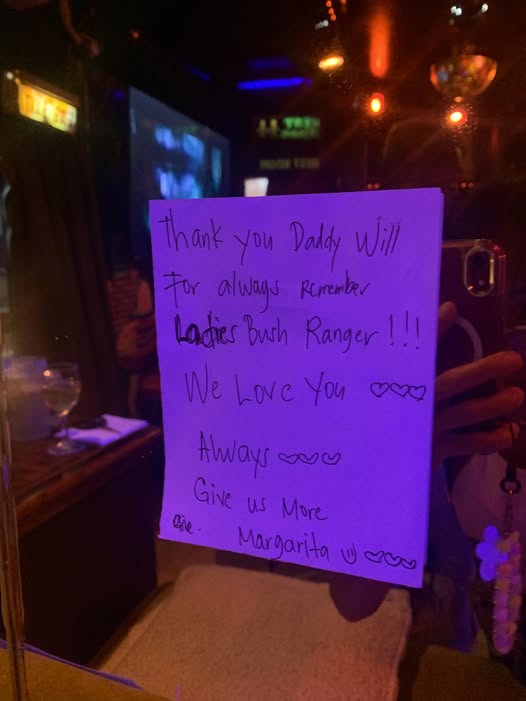 Thank you Daddy Will
For always Remember
Ladies Bush Ranger!!!
We Love You ♡♡♡
Always ♡♡♡
Give us More
Give.
Margarita ♡♡♡